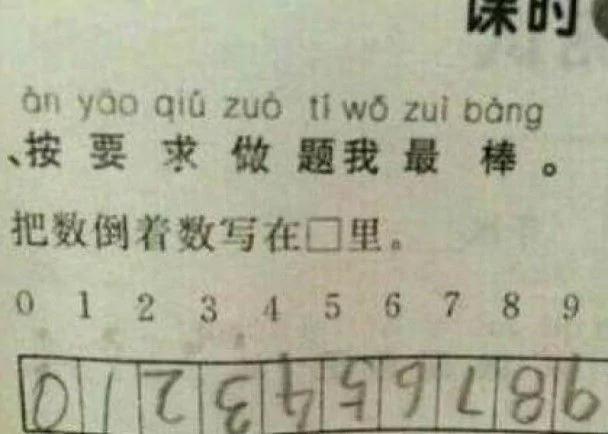 课时
àn yāo qiú zuò tí wǒ zuì bàng
、按要求做题我最棒。
把数倒着数写在□里。
0 1 2 3 4 5 6 7 8 9
0 1 2 3 4 5 6 7 8 9